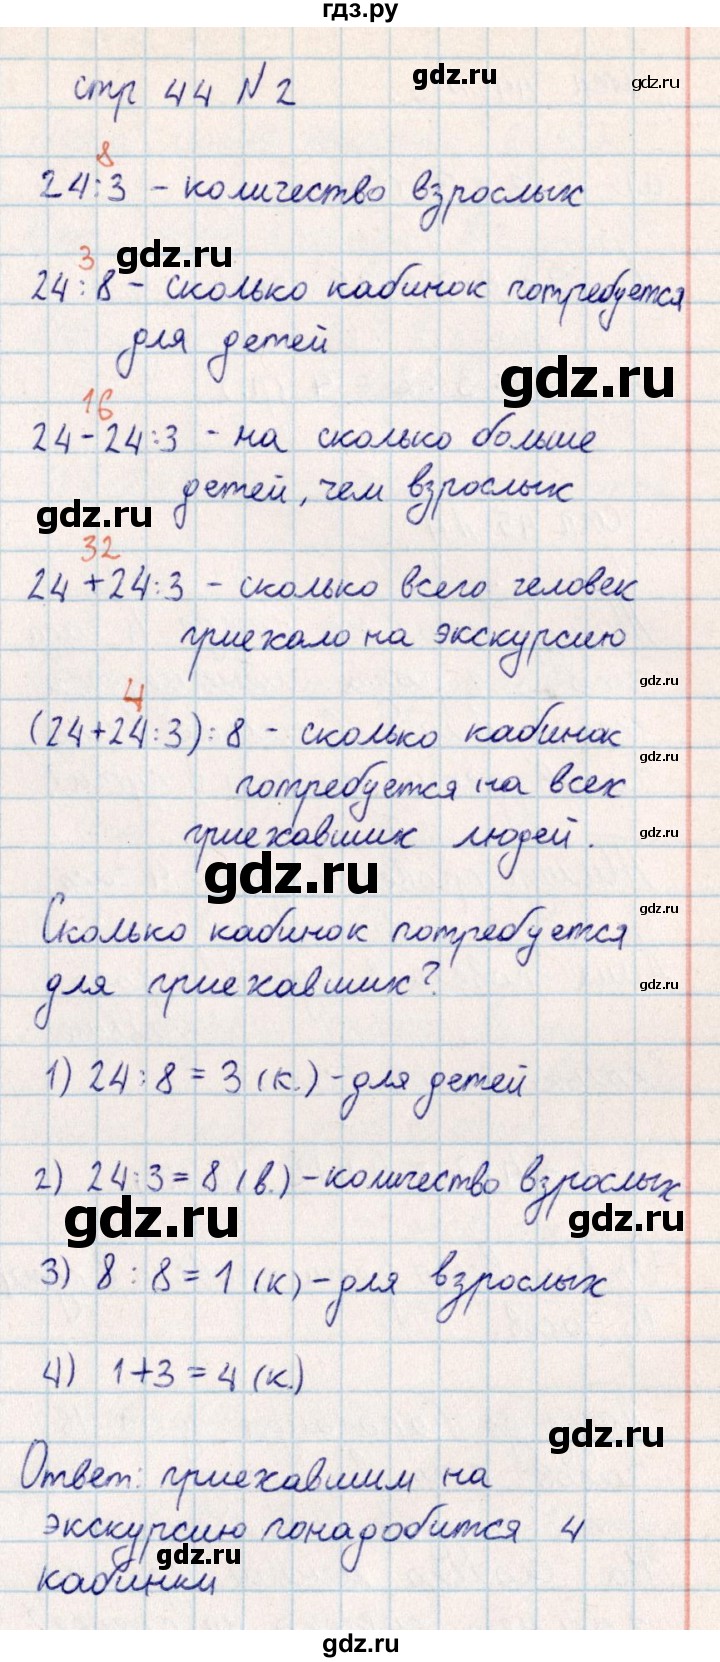 гдз.ру
gdz.ru
gdz.ru
стр 44 N 2
8
24:3 - количество взрослых
gdz.ru
3
24:8 - сколько кабинок потребуется
для детей
gdz.ru
16
24-24:3 - на сколько больше
детей, чем взрослых
gdz.ru
32
24+24:3 - сколько всего человек
приехало на экскурсию
gdz.ru
4
(24+24:3):8 - сколько кабинок
gdz.ru
потребуется на всех
приехавших людей.
gdz.ru
gdz.ru
gdz.ru
Сколько кабинок потребуется
для приехавших?
gdz.ru
1) 24:8=3 (к.) - для детей
2) 24:3=8 (в.) - количество взрослых
gdz.ru
gdz.ru
3) 8:8=1 (к) - для взрослых
4) 1+3=4 (к.)
gdz.ru
Ответ: приехавшим на
экскурсию понадобится 4
gdz.ru
кабинки
gdz.ru